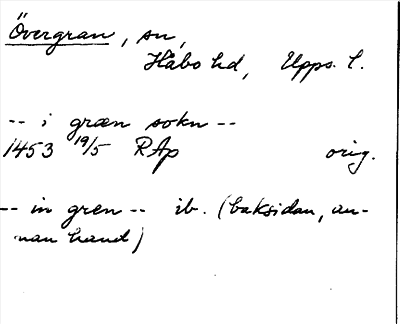 Övergran, sn,
Håbo hd, Upps. l.
-- i græn sokn --
1453 19/5 RAp orig.
-- in gren -- ib. (baksidan, an-
nan hand)